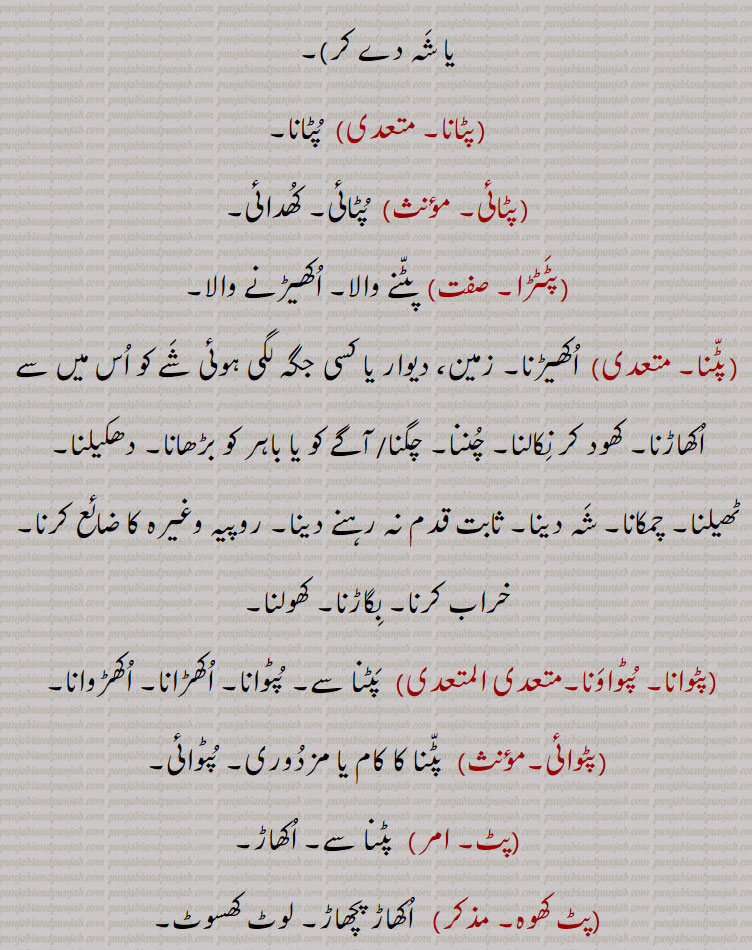 یا شَہ دے کر)۔
(پٹانا۔ متعدی) پُٹانا۔
(پٹائی۔ مؤنث) پُٹائی۔ کُھدائی۔
(پٹَنڑا۔ صفت) پٹّنے والا۔ اُکھیڑنے والا۔
(پٹّنا۔ متعدی) اُکھیڑنا۔ زمین، دیوار یا کسی جگہ لگی ہوئی شَے کو اُس میں سے
اُکھاڑنا۔ کھود کر نِکالنا۔ چُننا۔ چگنا/ آگے کو یا باہر کو بڑھانا۔ دھکیلنا۔
ٹھیلنا۔ چمکانا۔ شَہ دینا۔ ثابت قدم نہ رہنے دینا۔ روپیہ وغیرہ کا ضائع کرنا۔
خراب کرنا۔ بِگاڑنا۔ کھولنا۔
(پٹوانا۔ پُٹواوَنا۔متعدی المتعدی) پَٹنا سے۔ پُٹوانا۔ اُکھڑانا۔ اُکھڑوانا۔
(پٹوائی۔مؤنث) پٹّنا کا کام یا مزدُوری۔ پُٹوائی۔
(پٹ۔ امر) پٹنا سے۔ اُکھاڑ۔
(پٹ کھوہ۔ مذکر) اُکھاڑ پچھاڑ۔ لوٹ کھسوٹ۔